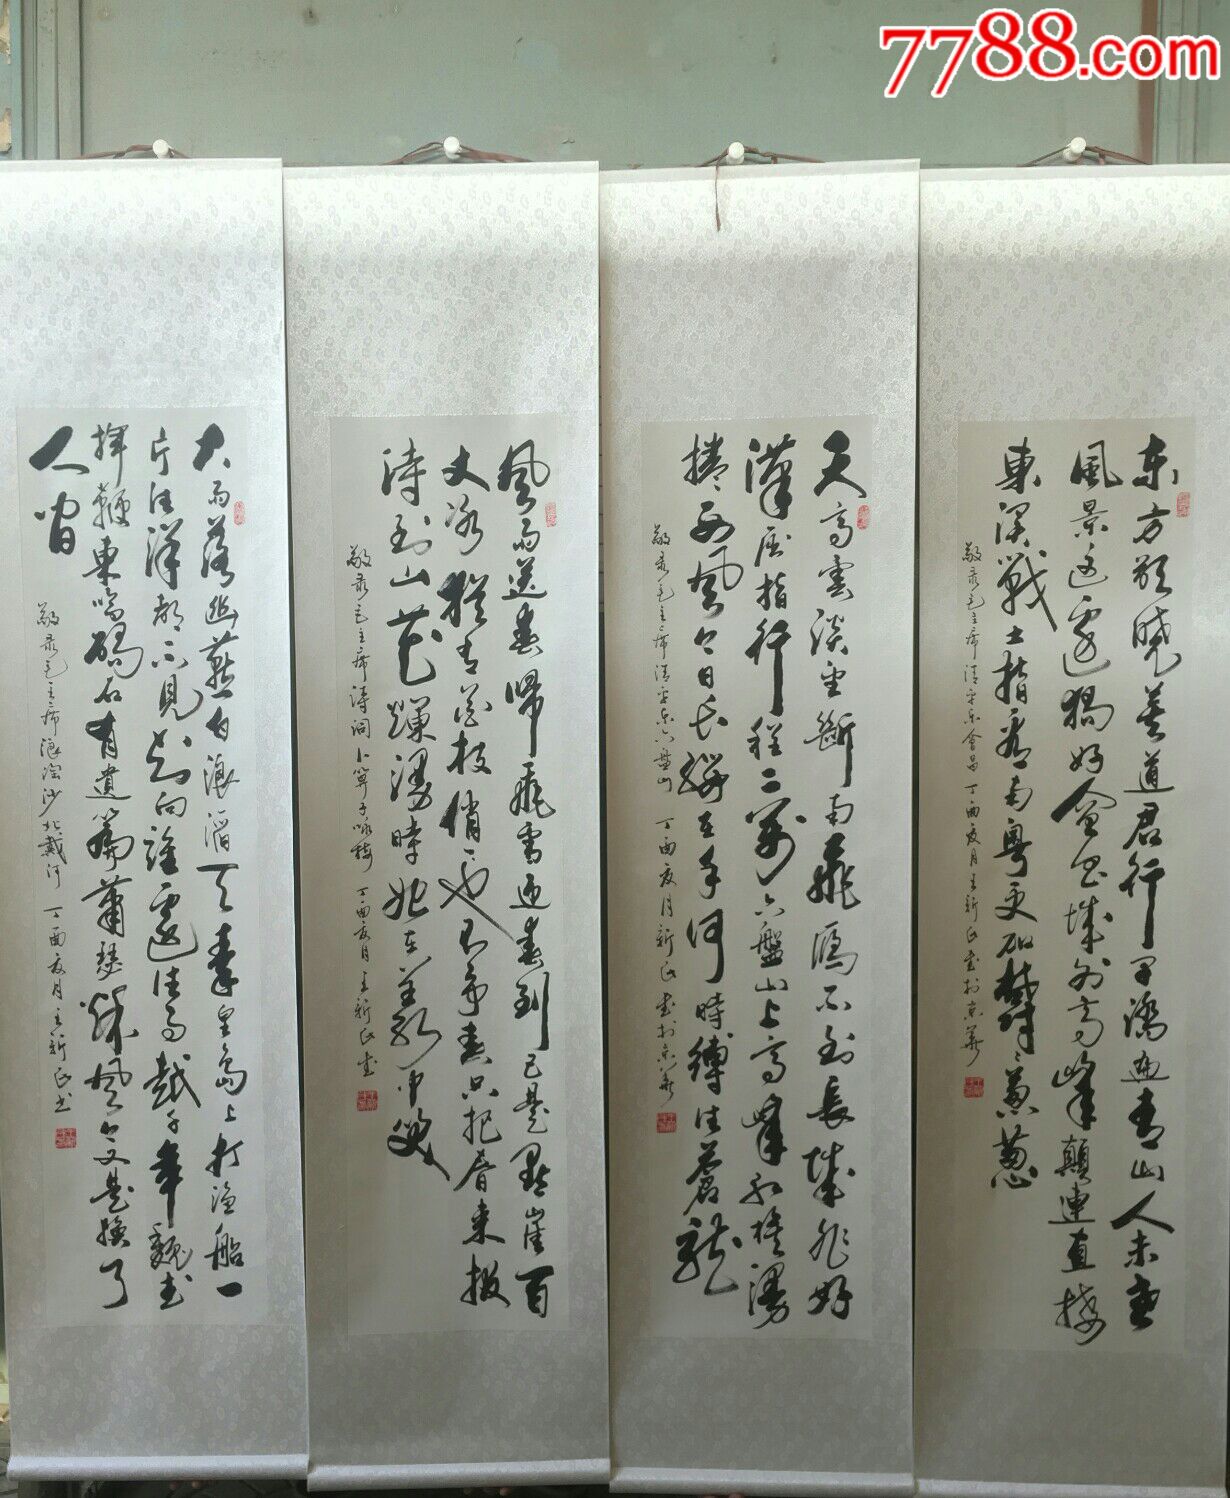 7788.com
东方欲曉莫道君行早踏遍青山人未老
風景这邊獨好會昌城外高峰顛連直接
東溟戰士指看南粤更加鬱々葱葱
敬录毛主席清平乐會昌 丁酉夏月王新民书於京華
天高雲淡望斷南飛雁不到長城非好
漢屈指行程二萬六盤山上高峰紅旗漫
捲西風今日长纓在手何時縛住蒼龍
敬录毛主席清平乐六盘山 丁酉夏月新民书於京華
風雨送春歸飛雪迎春到已是懸崖百
丈冰猶有花枝俏々也不争春只把春来报
待到山花爛漫時她在叢中笑
敬录毛主席詩词卜算子咏梅 丁酉夏月王新民书
大雨落幽燕白浪滔天秦皇島上打渔船一
片汪洋都不見知向誰邊往事越千年魏武
揮鞭東临碣石有遺篇蕭瑟秋風今又是换了
人間
敬录毛主席浪淘沙北戴河 丁酉夏月王新民书